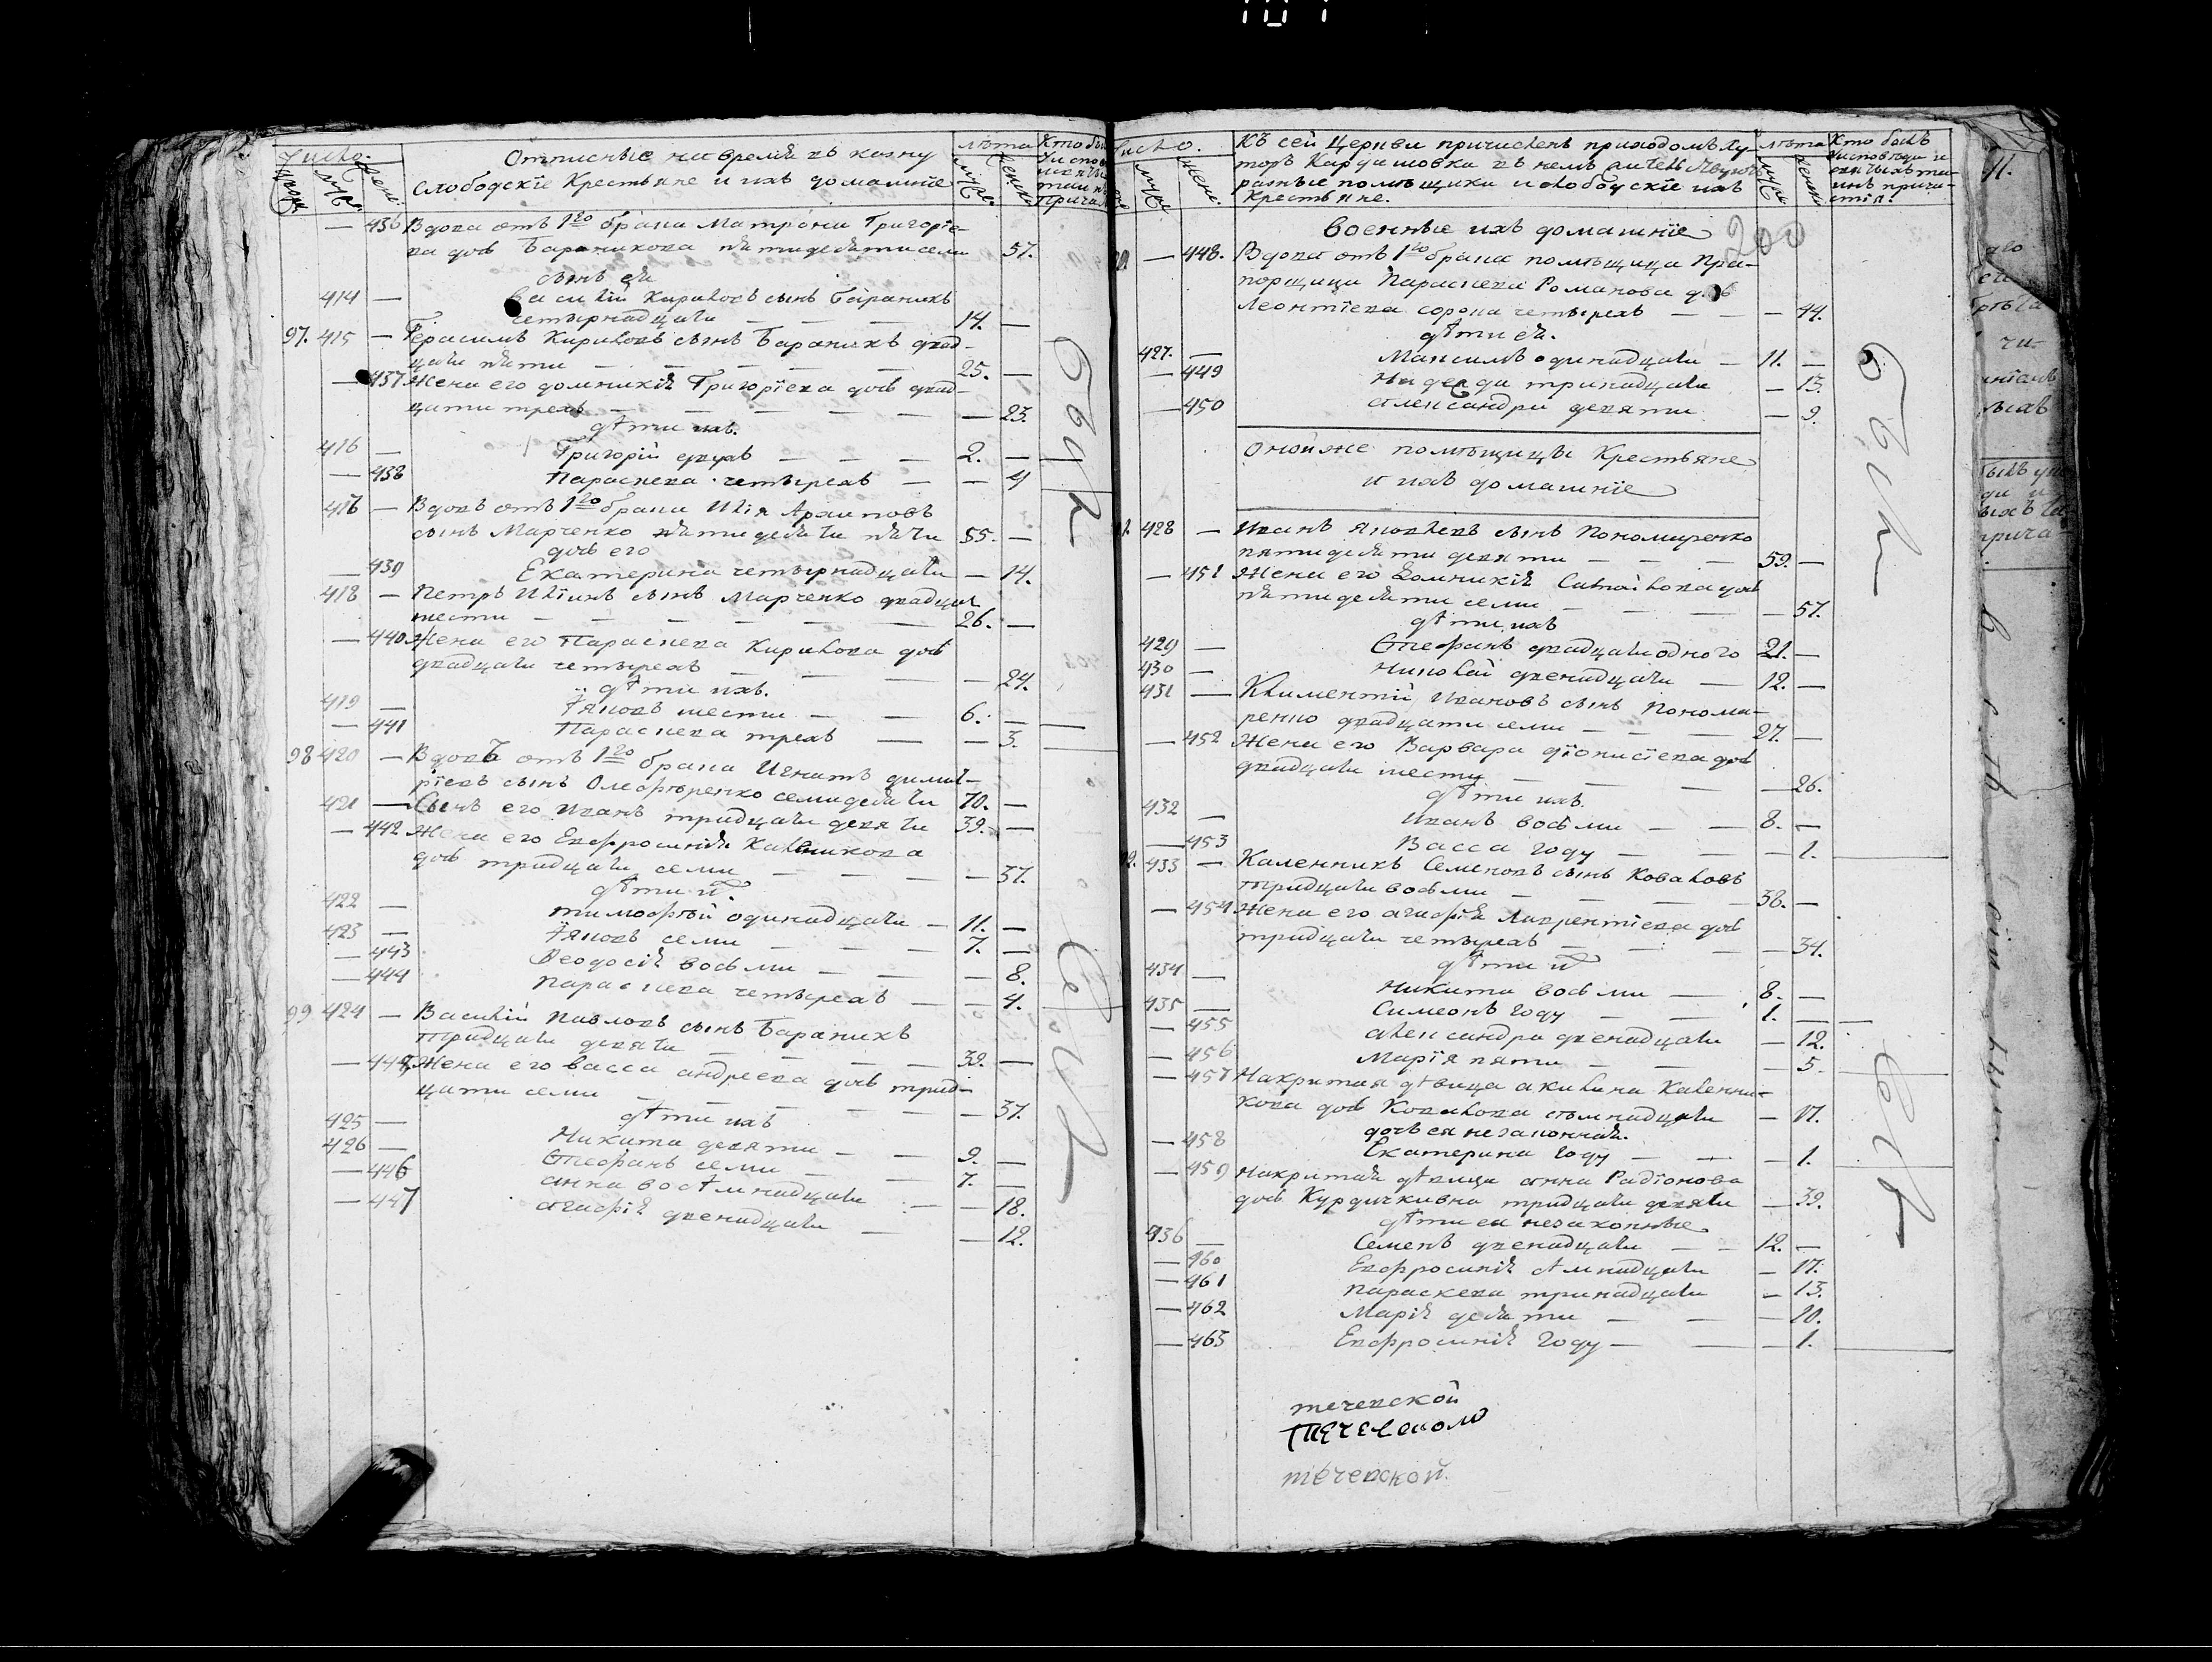 Число.
Отписные на время въ казну
слободскіе Крестьяне и ихъ домашніе
лѣта
436 Вдова отъ 1го брака Матрона Григоріе-
ва дочь Бараникова пятидесяти семи 57.
сынъ ея
414 — Василій Кириловъ сынъ Бараникъ
четырнадцати 14. —
97. 415 — Герасимъ Кириловъ сынъ Бараникъ двад-
цати пяти 25. —
— 437 Жена его Домникія Григоріева дочь двад-
цати трехъ — 23.
дѣти ихъ.
416 — Григорій двухъ 2. —
— 438 Параскева четырехъ — 4
417 — Вдовъ отъ 1го брака Илія Архиповъ
сынъ Марченко пятидесяти пяти 55. —
дочь его
— 439 Екатерина четырнадцати — 14.
418 — Петръ Иліинъ сынъ Марченко двадцати
шести 26. —
— 440 Жена его Параскева Кирилова дочь
двадцати четырехъ — 24.
дѣти ихъ.
419 — Іяковъ шести 6. —
— 441 Параскева трехъ — 3.
98 420 — Вдовъ отъ 1го брака Игнатъ Димит-
ріевъ сынъ Олефѣренко семидесяти 70. —
421 — Сынъ его Иванъ тридцати девяти 39. —
— 442 Жена его Евфросинія Каленикова
дочь тридцати семи — 37.
дѣти ихъ
422 — Тимофѣй одинадцати 11. —
423 — Іяковъ семи 7. —
— 443 Феодосія восьми — 8.
— 444 Параскева четырехъ — 4.
99 424 — Василій Павловъ сынъ Бараникъ
тридцати девяти 39. —
— 445 Жена его Васса Андреева дочь трид-
цати семи — 37.
дѣти ихъ
425 — Никита девяти 9. —
426 — Стефанъ семи 7. —
— 446 Анна восѣмнадцати — 18.
— 447 Агафія двенадцати — 12.
Къ сей Церкви причисленъ приходомъ Ху-
торъ Кардашовка въ немъ
разные помѣщики и слободскіе ихъ
Крестьяне.
лѣта
Кто былъ
200
Военные ихъ домашніе
— 448. Вдова отъ 1го брака помѣщица Пра-
порщица Параскева Романова дочь
Леонтіева сорока четырехъ — 44.
дѣти ея.
427. — Максимъ одинадцати 11. —
— 449 Надежда тринадцати — 13.
— 450 Александра девяти — 9.
Оной же помѣщицы Крестьяне
и ихъ домашніе
428 — Иванъ Яковлевъ сынъ Пономаренко
пятидесяти девяти 59. —
— 451 Жена его Домникія дочь
пятидесяти семи — 57.
дѣти ихъ
429 — Стефанъ двадцати одного 21. —
430 — Николай двенадцати 12. —
431 — Климентій Ивановъ сынъ Понома-
ренко двадцати семи 27. —
— 452 Жена его Варвара Діонисіева дочь
двадцати шести — 26.
дѣти ихъ.
432 — Иванъ восьми 8. —
— 453 Васса году — 1.
433 — Каленникъ Семеновъ сынъ Коваловъ
тридцати восьми 38. —
— 454 Жена его Агафія Лаврентіева дочь
тридцати четырехъ — 34.
дѣти ихъ
434 — Никита восьми 8. —
435 — Симеонъ году 1. —
— 455 Александра двенадцати — 12.
— 456 Марія пяти — 5.
— 457 Накритая дѣвица Акилина Каленни-
кова дочь Ковалова семнадцати — 17.
дочь ея незаконная.
— 458 Екатерина году — 1.
— 459 Накритая дѣвица Анна Радіонова
дочь Курдичкивна тридцати девяти — 39.
дѣти ея незаконные
436 — Семенъ двенадцати 12. —
— 460 Евфросинія сѣмнадцати — 17.
— 461 Параскева тринадцати — 13.
— 462 Марія десяти — 10.
— 463 Евфросинія году — 1.
течевской
течевской.